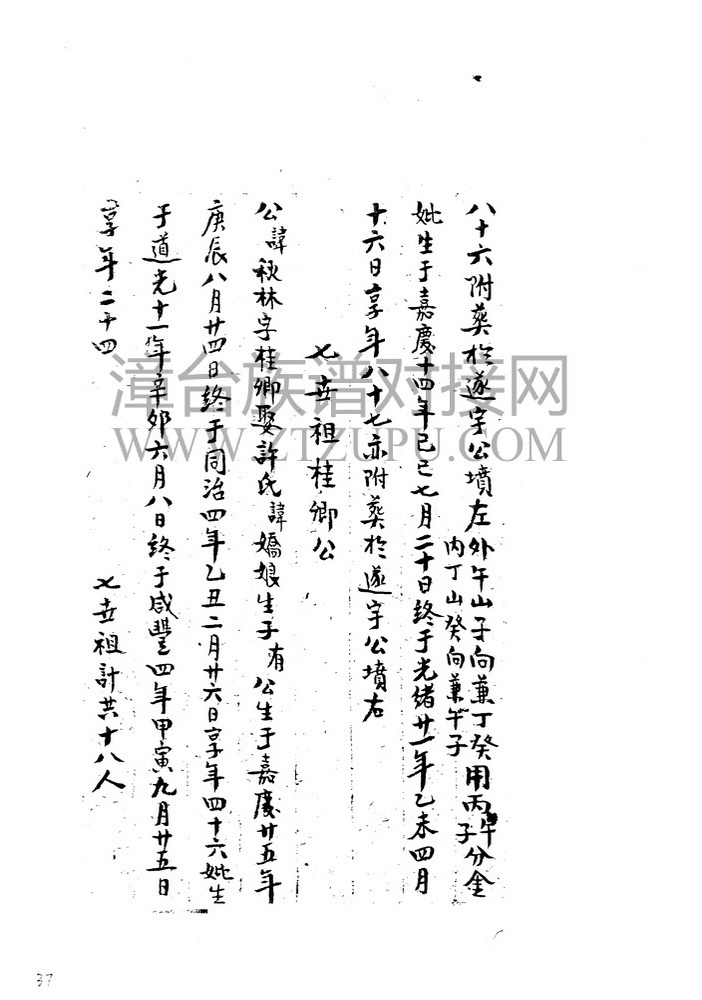 八十六附葬於遂字公墳左外午山子向兼丁癸用丙午子分金
內丁山癸向兼午子
妣生于嘉慶十四年己巳七月二十日終于光緒廿一年乙未四月
十六日享年八十七亦附葬於遂字公墳右
七世祖桂卿公
公諱秋林字桂卿娶許氏諱嬌娘生子有 公生于嘉慶廿五年
庚辰八月廿四日終于同治四年乙丑二月廿六日享年四十六妣生
于道光十一年辛卯六月八日終于咸豐四年甲寅九月廿五日
享年二十四
七世祖計共十八人
漳台族谱对接网
WWW.ZTZUPU.COM
37